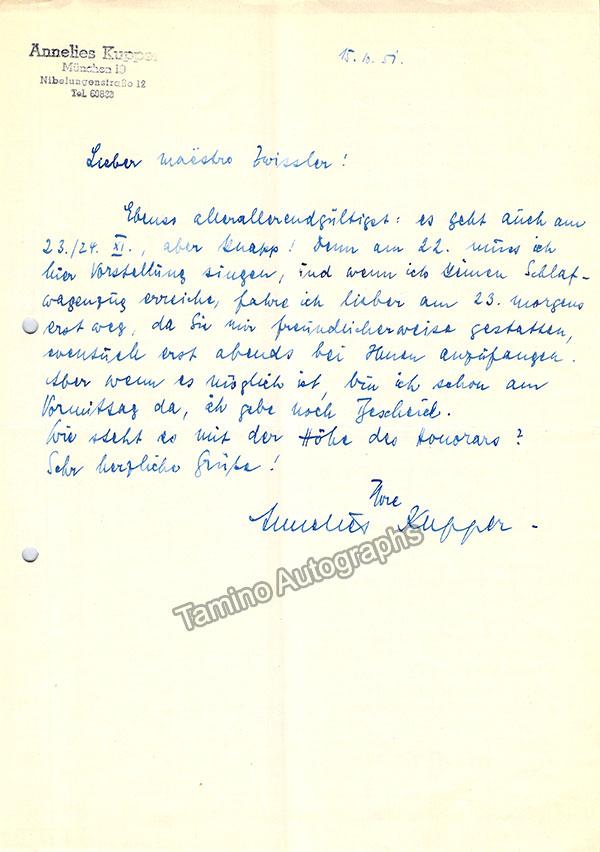 Annelies Kupper
München 19
Nibelungenstraße 12
Tel. 60833
15. 10. 51.
Lieber maëstro Zwissler!
Ebenso allerallerendgültigst: es geht auch am
23./24. XI., aber knapp! Denn am 22. muss ich
hier Vorstellung singen, und wenn ich keinen Schlaf-
wagenzug erreiche, fahre ich lieber am 23. morgens
erst weg, da Sie mir freundlicherweise gestatten,
eventuell erst abends bei Ihnen anzufangen.
Aber wenn es möglich ist, bin ich schon am
Vormittag da, ich gebe noch Bescheid.
Wie steht es mit der Höhe des Honorars?
Sehr herzliche Grüße!
Ihre
Annelies Kupper.
Tamino Autographs